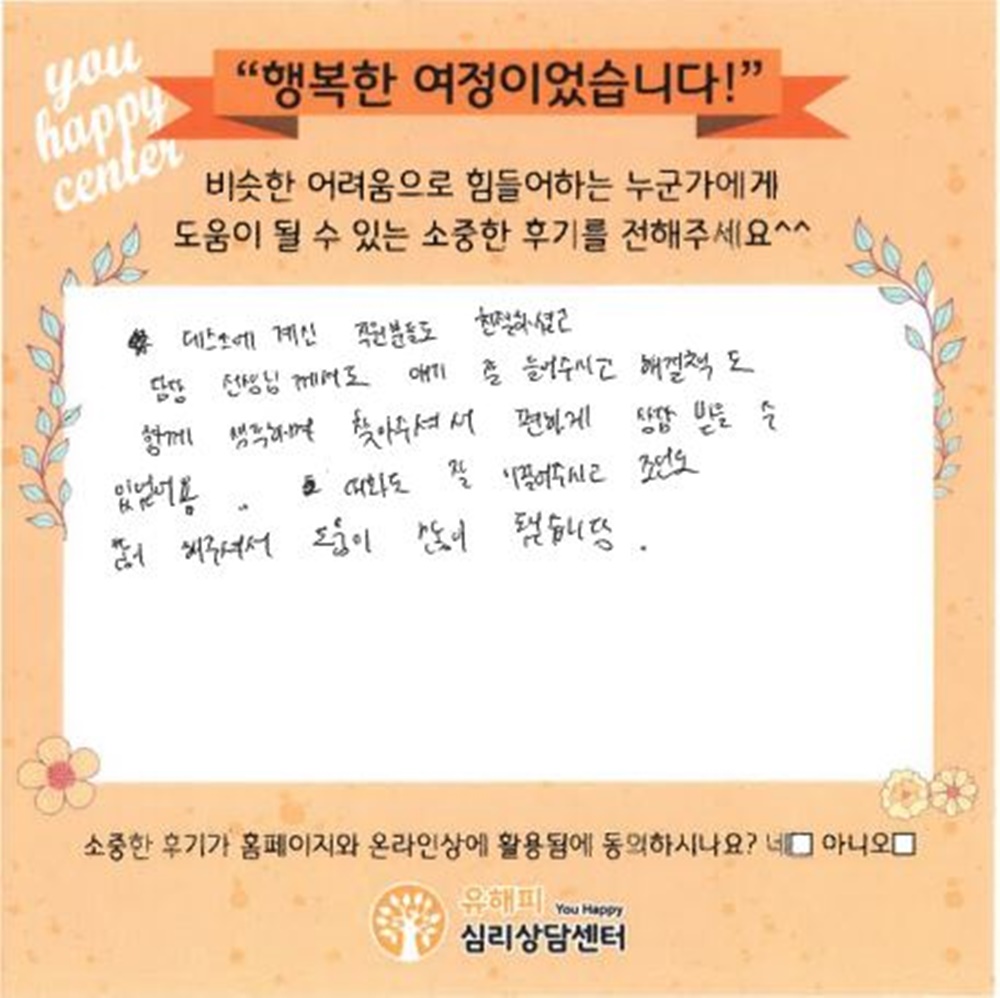 you
happy
center
“행복한 여정이었습니다!”
비슷한 어려움으로 힘들어하는 누군가에게
도움이 될 수 있는 소중한 후기를 전해주세요^^
데스크에 계신 직원분들도 친절하셨고
담당 선생님께서도 얘기 잘 들어주시고 해결책도
함께 생각하며 찾아주셔서 편하게 상담 받을 수
있었어용 .. 대화도 잘 이끌어주시고 조언도
많이 해주셔서 도움이 많이 됬습니당.
소중한 후기가 홈페이지와 온라인상에 활용됨에 동의하시나요? 네□ 아니오□
유해피 You Happy
심리상담센터